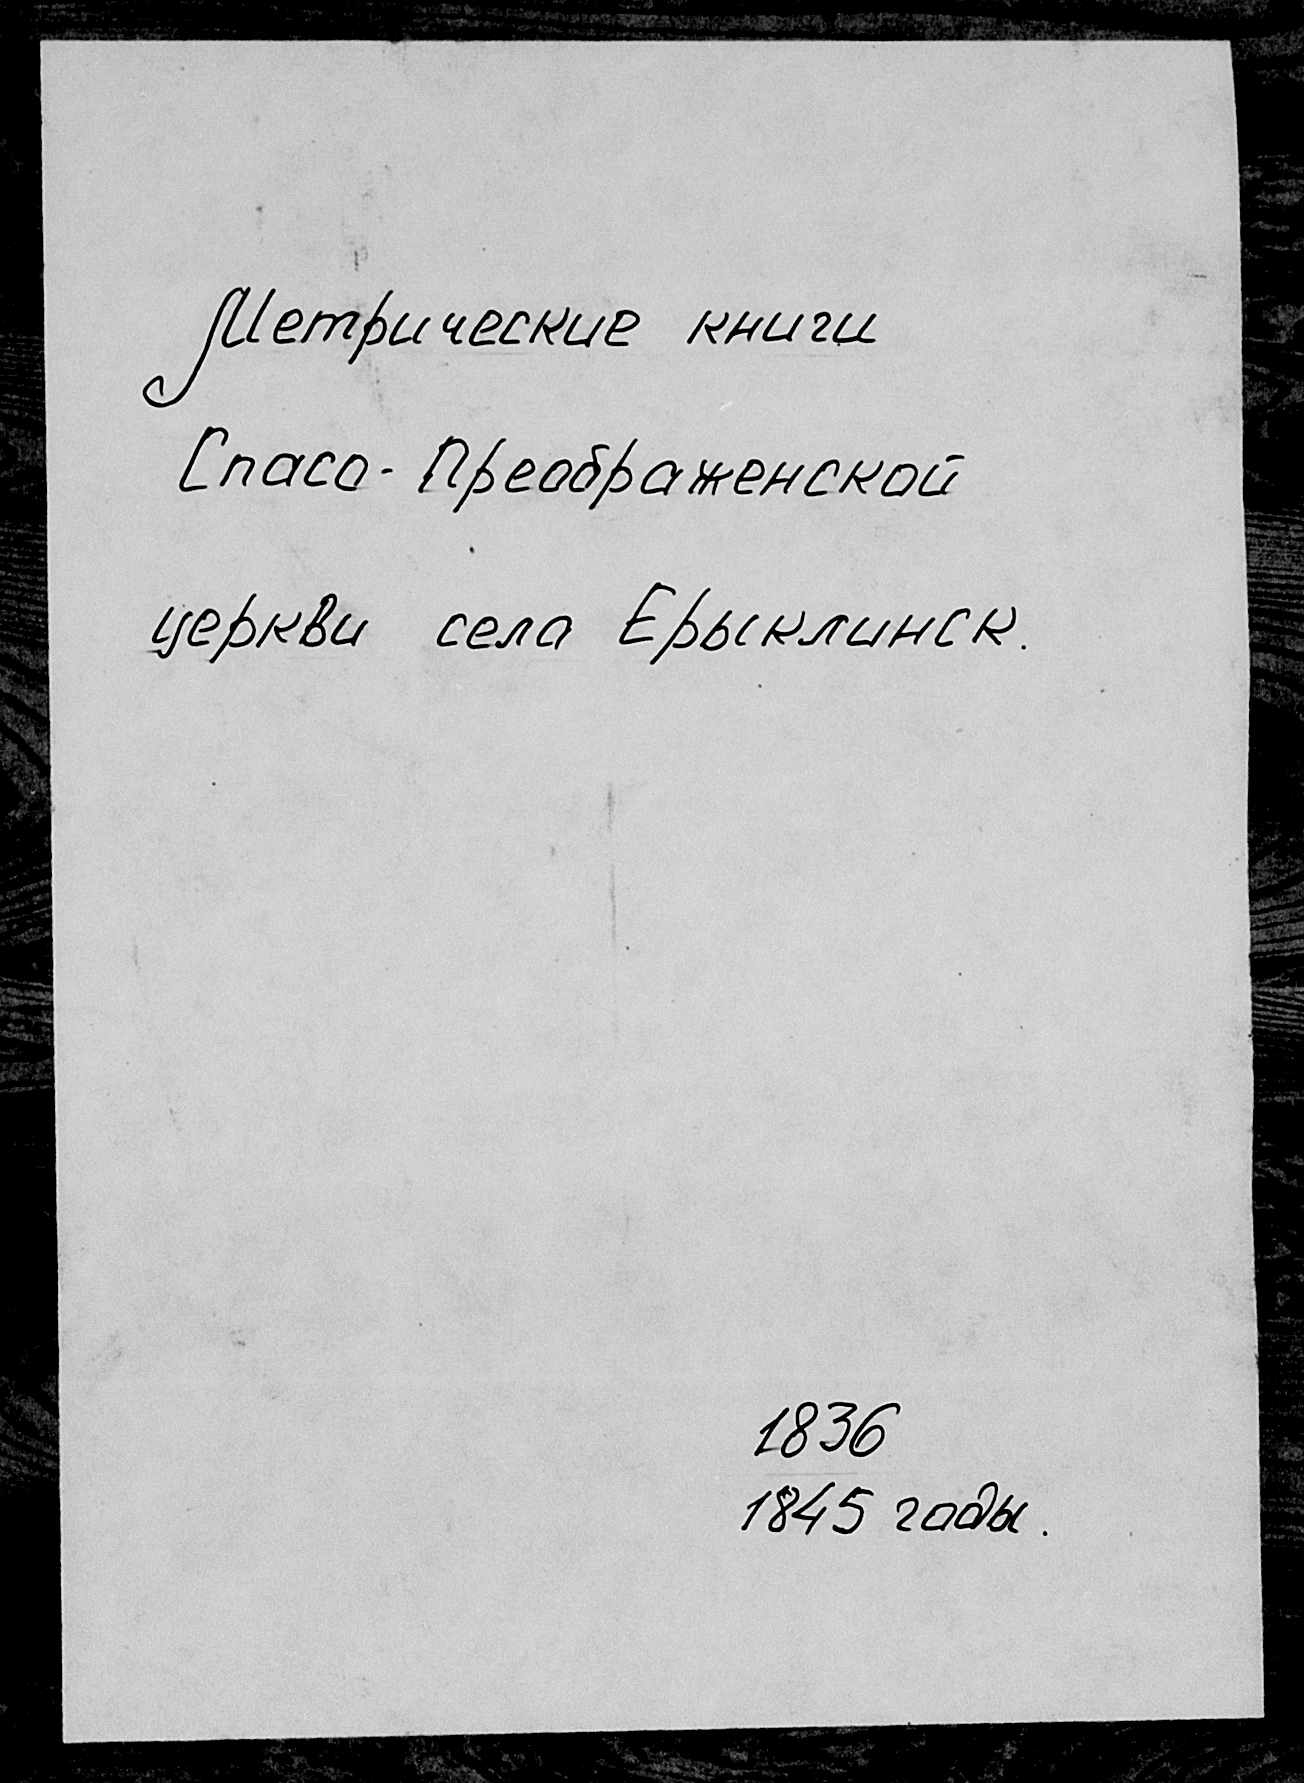 Метрические книги
Спасо-Преображенской
церкви села Ерыклинск.
1836
1845 годы.